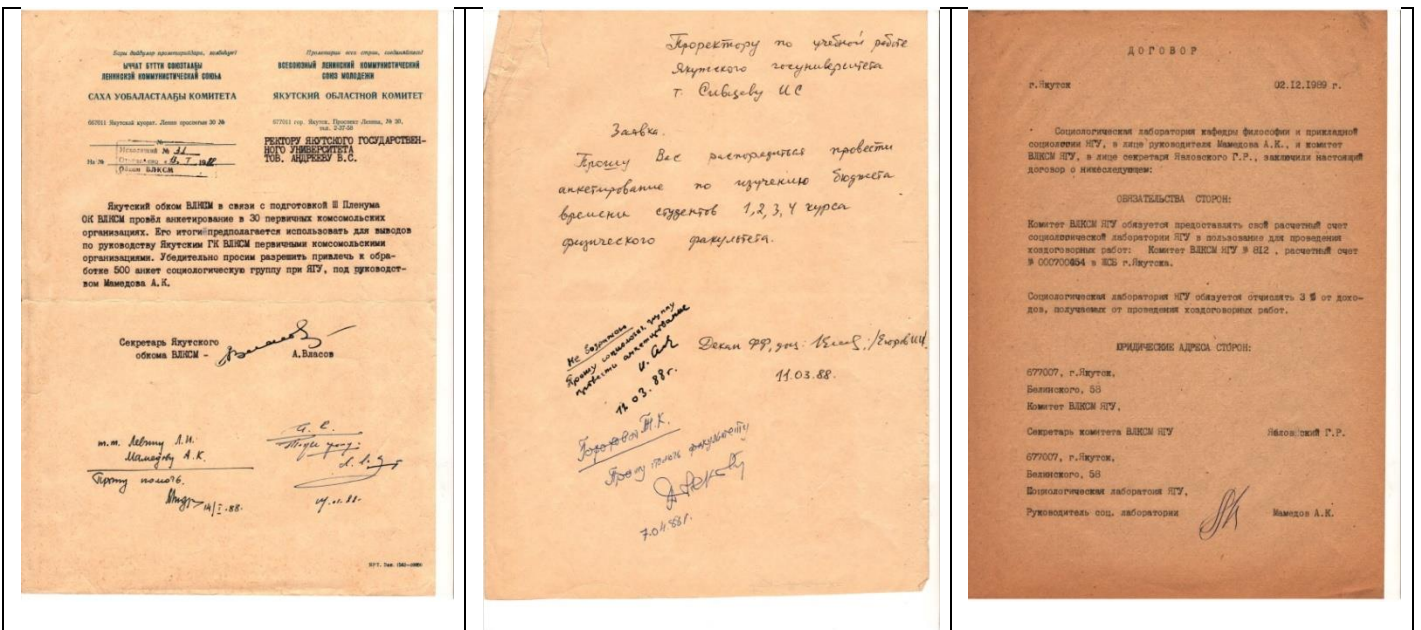 Бары дойдулар пролетарийдара, холбоһуҥ!
ЫЧЧАТ БҮТҮН СОЮЗТААҔЫ
ЛЕНИНСКЭЙ КОММУНИСТИЧЕСКАЙ СОЮҺА
САХА УОБАЛАСТААҔЫ КОМИТЕТА
677011 Якутскай куорат. Ленин проспегын 30 №
Пролетарии всех стран, соединяйтесь!
ВСЕСОЮЗНЫЙ ЛЕНИНСКИЙ КОММУНИСТИЧЕСКИЙ
СОЮЗ МОЛОДЕЖИ
ЯКУТСКИЙ ОБЛАСТНОЙ КОМИТЕТ
677011 гор. Якутск, Проспект Ленина, № 30,
тел. 2-37-50
Исходящий № 31
На №
Обком ВЛКСМ
РЕКТОРУ ЯКУТСКОГО ГОСУДАРСТВЕН-
НОГО УНИВЕРСИТЕТА
ТОВ. АНДРЕЕВУ В.С.
Якутский обком ВЛКСМ в связи с подготовкой Ш Пленума
ОК ВЛКСМ провёл анкетирование в 30 первичных комсомольских
организациях. Его итоги предполагается использовать для выводов
по руководству Якутским ГК ВЛКСМ первичными комсомольскими
организациями. Убедительно просим разрешить привлечь к обра-
ботке 500 анкет социологическую группу при ЯГУ, под руководст-
вом Мамедова А.К.
Секретарь Якутского
обкома ВЛКСМ - А.Власов
т.т. Левину Л.И.
Мамедову А.К.
Прошу помочь.
14/I-88.
Проректору по учебной работе
Якутского госуниверситета
т. Сивцеву И С
Заявка.
Прошу Вас распорядиться провести
анкетирование по изучению бюджета
времени студентов 1,2,3,4 курса
физического факультета.
Не возражаю
Прошу социологич. группу
провести анкетирование
11.03.88г.
Декан ФФ, доц: /Егоров И.И.
11.03.88.
Гороховой Т.К.
Прошу помочь факультету
7.04.88г.
ДОГОВОР
г.Якутск 02.12.1989 г.
Социологическая лаборатория кафедры философии и прикладной
социологии ЯГУ, в лице руководителя Мамедова А.К., и комитет
ВЛКСМ ЯГУ, в лице секретаря Яловского Г.Р., заключили настоящий
договор о нижеследующем:
ОБЯЗАТЕЛЬСТВА СТОРОН:
Комитет ВЛКСМ ЯГУ обязуется предоставлять свой расчетный счет
социологической лаборатории ЯГУ в пользование для проведения
хоздоговорных работ: Комитет ВЛКСМ ЯГУ № 812 , расчетный счет
№ 000700454 в ЖСБ г.Якутска.
Социологическая лаборатория ЯГУ обязуется отчислять 3 % от дохо-
дов, получаемых от проведения хоздоговорных работ.
ЮРИДИЧЕСКИЕ АДРЕСА СТОРОН:
677007, г.Якутск,
Белинского, 58
Комитет ВЛКСМ ЯГУ,
Секретарь комитета ВЛКСМ ЯГУ Яловский Г.Р.
677007, г.Якутск,
Белинского, 58
Социологическая лаборатория ЯГУ,
Руководитель соц. лаборатории Мамедов А.К.